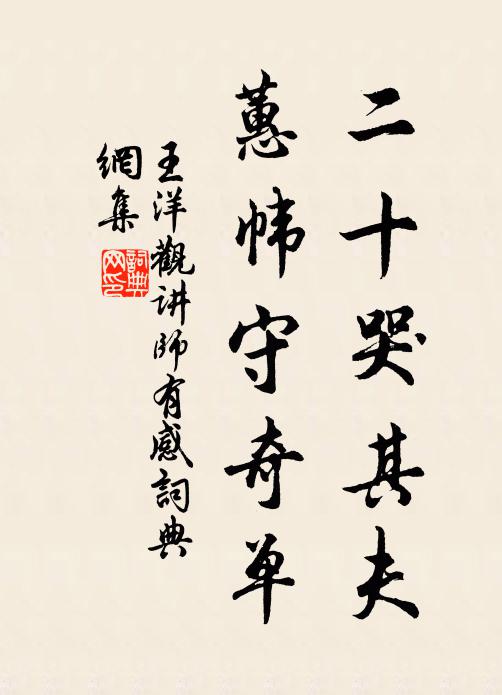 二十哭其夫
蕙帏守奇单
王洋觀讲师有感詞典
網集
詞典
网印